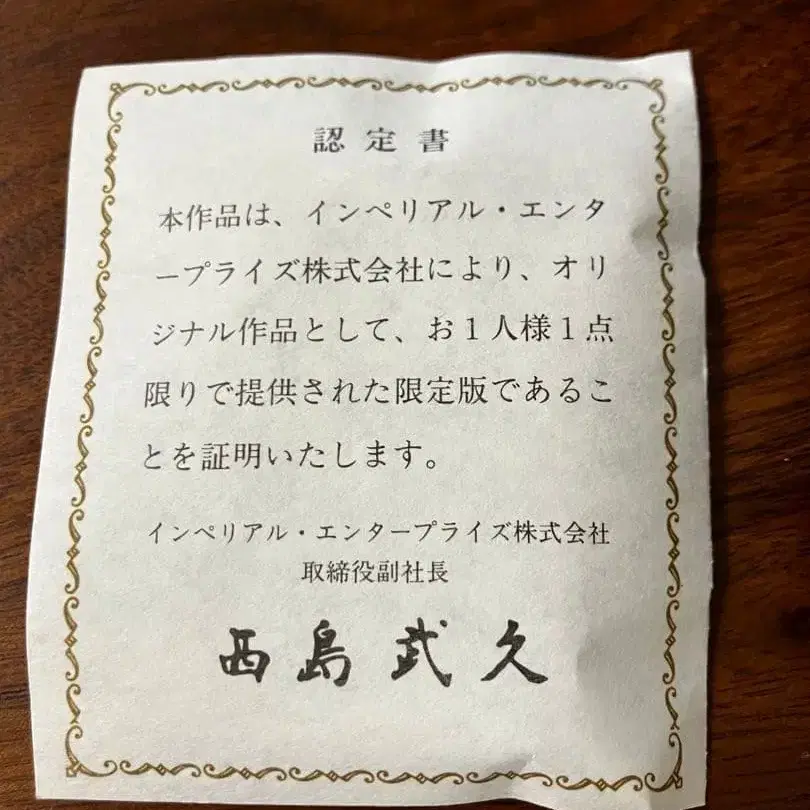 認定書
本作品は、インペリアル・エンタ
ープライズ株式会社により、オリ
ジナル作品として、お１人様１点
限りで提供された限定版であるこ
とを証明いたします。
インペリアル・エンタープライズ株式会社
取締役副社長
西島武久